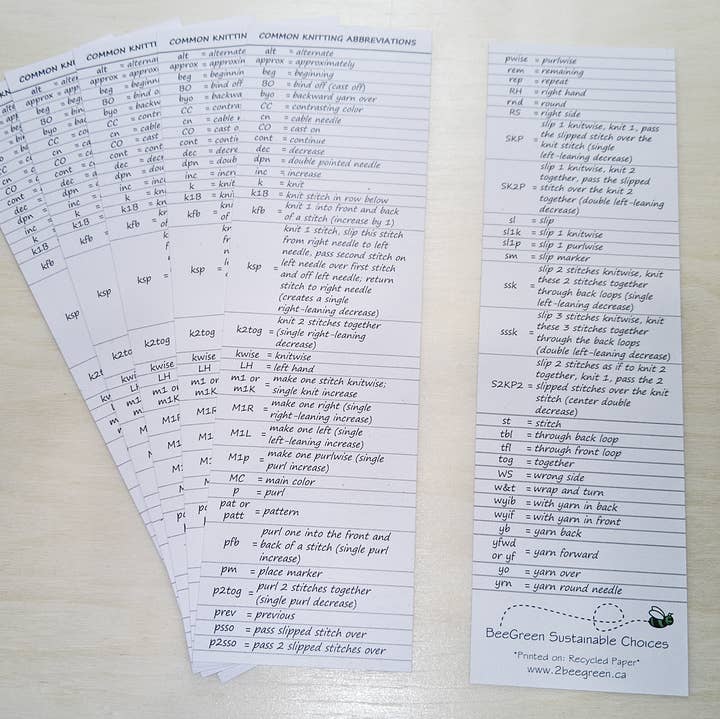 COMMON KNITTING ABBREVIATIONS
alt = alternate
approx = approximately
beg = beginning
BO = bind off (cast off)
byo = backward yarn over
CC = contrasting color
cn = cable needle
CO = cast on
cont = continue
dec = decrease
dpn = double pointed needle
inc = increase
k = knit
k1B = knit stitch in row below
kfb = knit 1 into front and back
of a stitch (increase by 1)
knit 1 stitch, slip this stitch
from right needle to left
needle, pass second stitch on
ksp = left needle over first stitch
and off left needle; return
stitch to right needle
(creates a single
right-leaning decrease)
knit 2 stitches together
k2tog = (single right-leaning
decrease)
kwise = knitwise
LH = left hand
m1 or = make one stitch knitwise;
m1K single knit increase
M1R = make one right (single
right-leaning increase)
M1L = make one left (single
left-leaning increase)
M1p = make one purlwise (single
purl increase)
MC = main color
p = purl
pat or
patt = pattern
purl one into the front and
pfb = back of a stitch (single purl
increase)
pm = place marker
p2tog = purl 2 stitches together
(single purl decrease)
prev = previous
psso = pass slipped stitch over
p2sso = pass 2 slipped stitches over
pwise = purlwise
rem = remaining
rep = repeat
RH = right hand
rnd = round
RS = right side
slip 1 knitwise, knit 1, pass
SKP = the slipped stitch over the
knit stitch (single
left-leaning decrease)
slip 1 knitwise, knit 2
together, pass the slipped
SK2P = stitch over the knit 2
together (double left-leaning
decrease)
sl = slip
sl1k = slip 1 knitwise
sl1p = slip 1 purlwise
sm = slip marker
slip 2 stitches knitwise, knit
ssk = these 2 stitches together
through back loops (single
left-leaning decrease)
slip 3 stitches knitwise, knit
sssk = these 3 stitches together
through the back loops
(double left-leaning decrease)
slip 2 stitches as if to knit 2
together, knit 1, pass the 2
S2KP2 = slipped stitches over the knit
stitch (center double
decrease)
st = stitch
tbl = through back loop
tfl = through front loop
tog = together
WS = wrong side
w&t = wrap and turn
wyib = with yarn in back
wyif = with yarn in front
yb = yarn back
yfwd
or yf = yarn forward
yo = yarn over
yrn = yarn round needle
BeeGreen Sustainable Choices
*Printed on: Recycled Paper*
www.2beegreen.ca